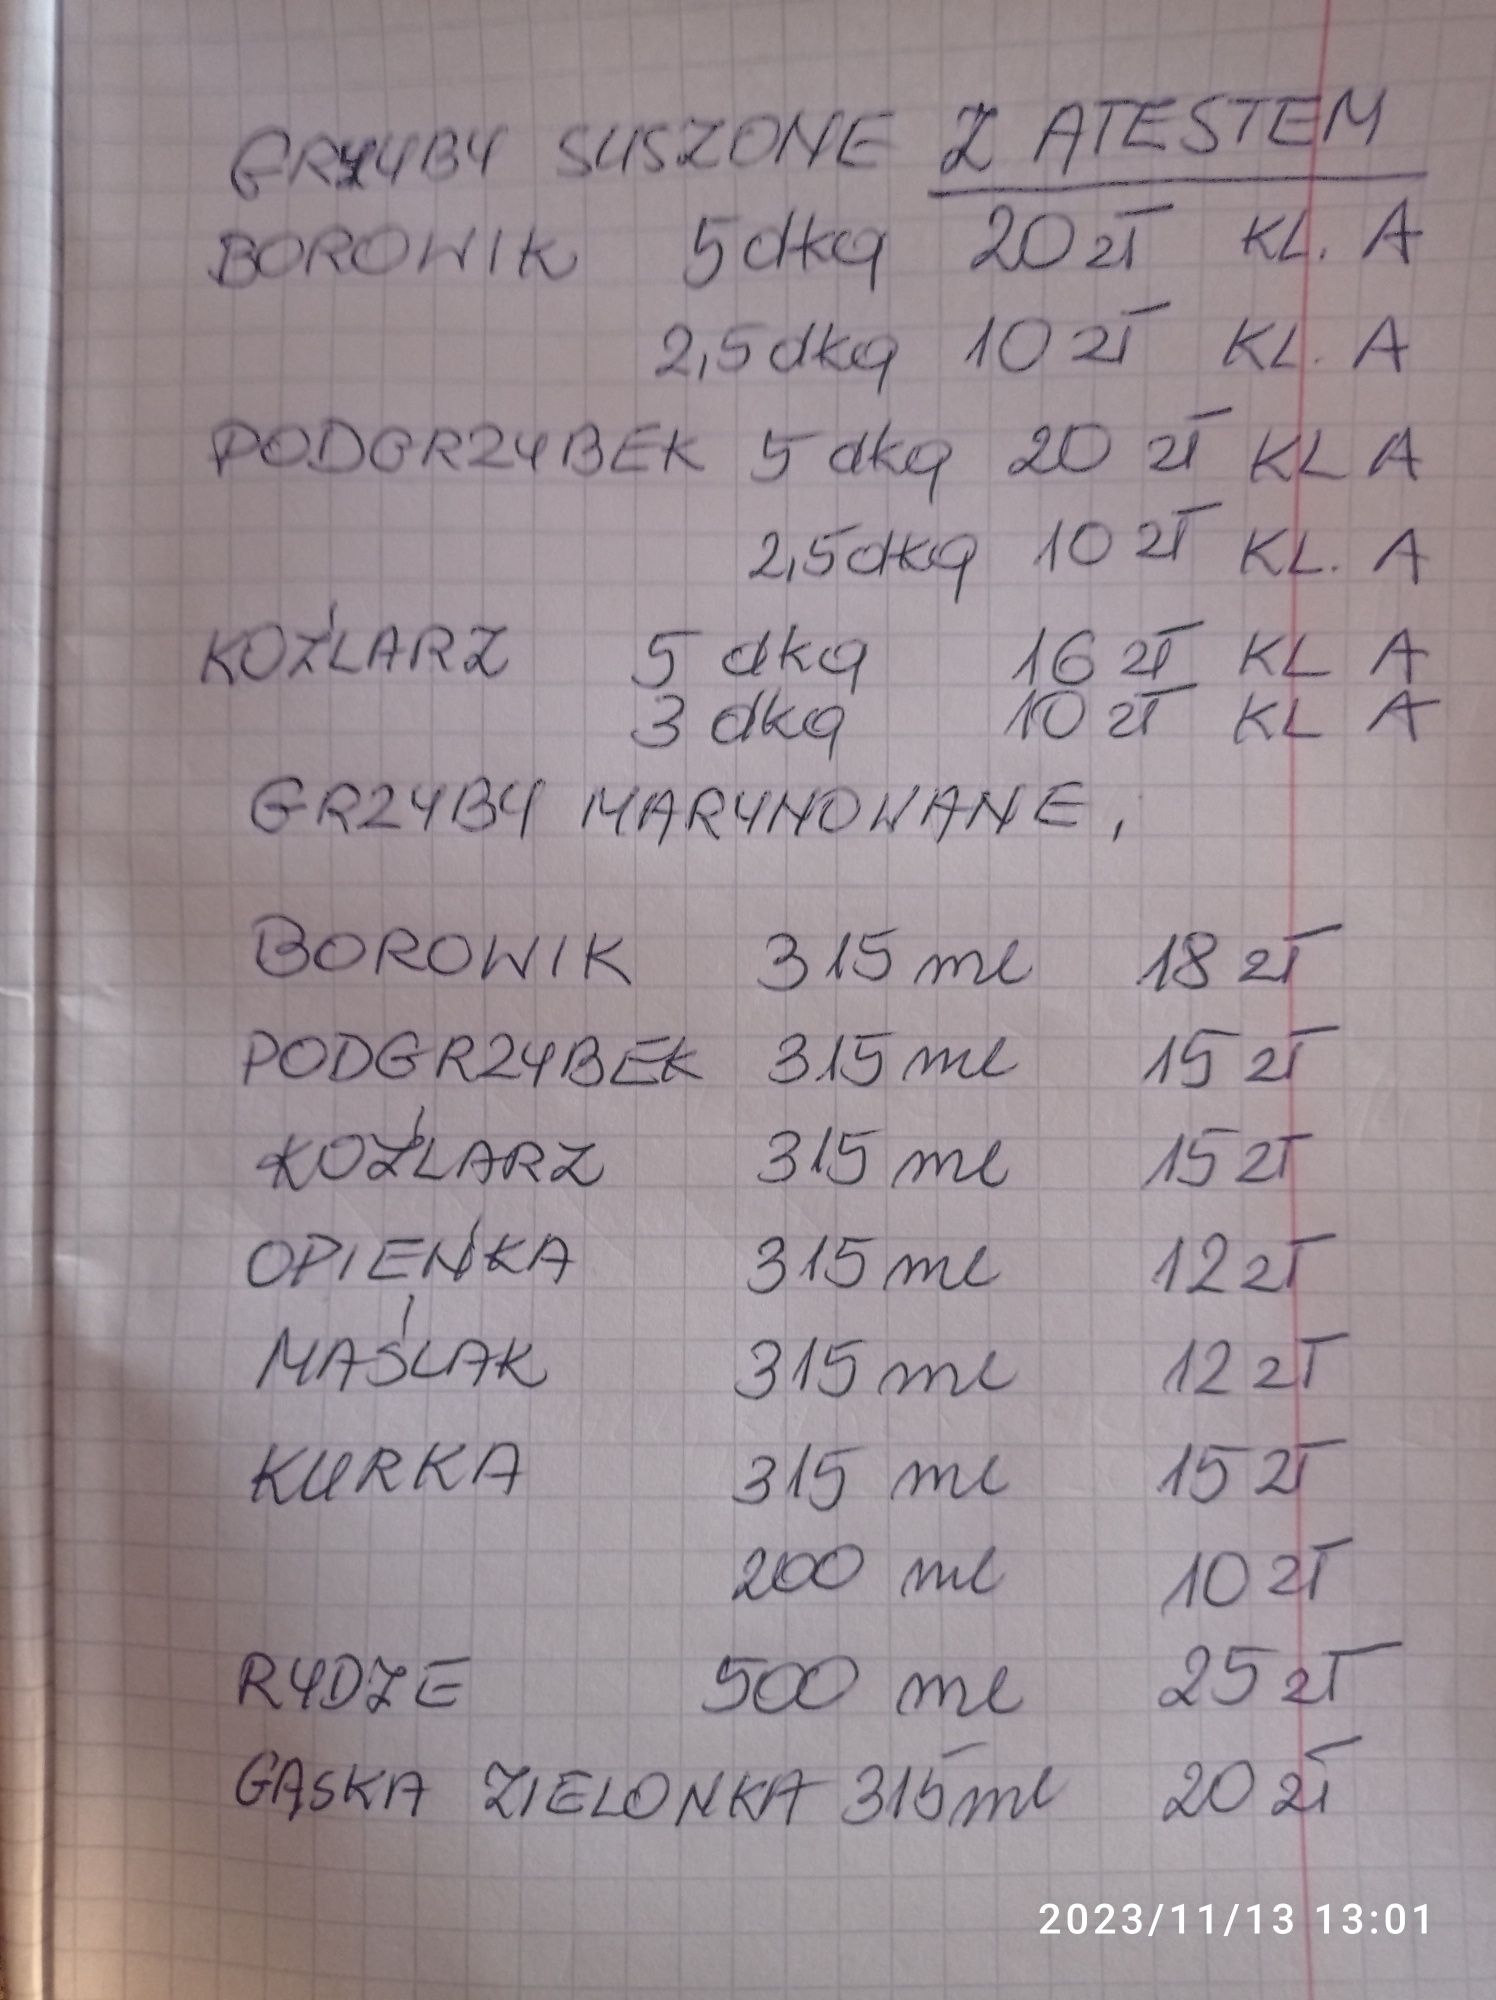 GRZYBY SUSZONE Z ATESTEM
BOROWIK 5 dkg 20 zł KL. A
2,5 dkg 10 zł KL. A
PODGRZYBEK 5 dkg 20 zł KL A
2,5 dkg 10 zł KL. A
KOŹLARZ 5 dkg 16 zł KL A
3 dkg 10 zł KL A
GRZYBY MARYNOWANE,
BOROWIK 315 ml 18 zł
PODGRZYBEK 315 ml 15 zł
KOŹLARZ 315 ml 15 zł
OPIEŃKA 315 ml 12 zł
MAŚLAK 315 ml 12 zł
KURKA 315 ml 15 zł
200 ml 10 zł
RYDZE 500 ml 25 zł
GĄSKA ZIELONKA 315 ml 20 zł
2023/11/13 13:01